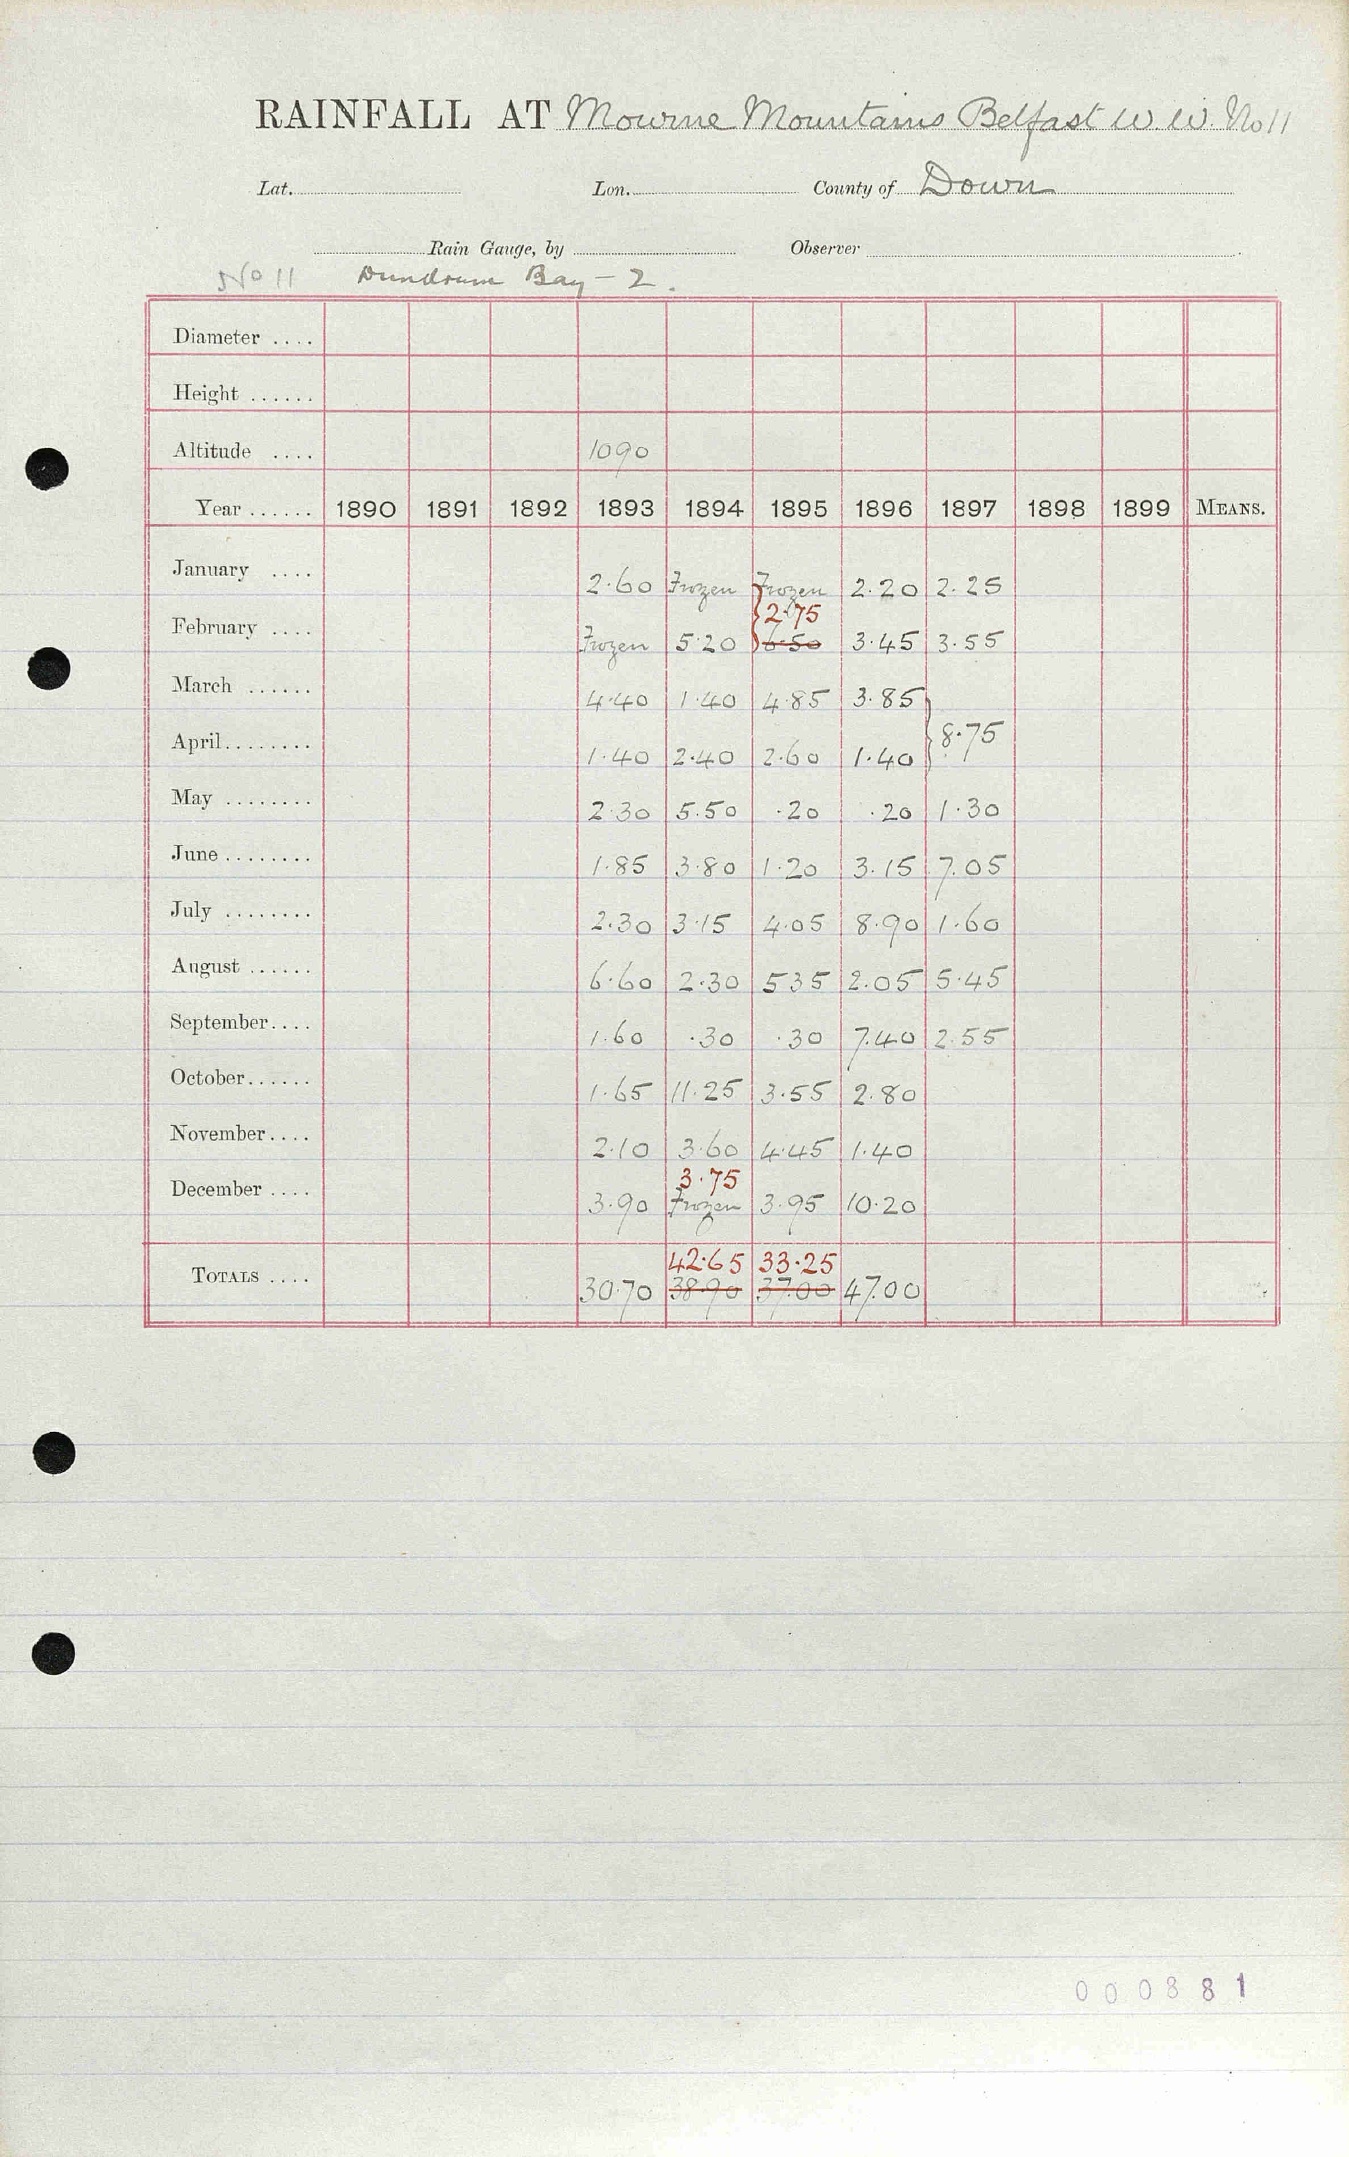 RAINFALL AT Mourne Mountains Belfast W.W. No 11
Lat. Lon. County of Down
Rain Gauge, by Observer
No 11 Dundrum Bay - 2.
Diameter ....
Height ......
Altitude .... 1090
Year ...... 1890 1891 1892 1893 1894 1895 1896 1897 1898 1899 MEANS.
January .... 2.60 Frozen Frozen 2.20 2.25
2.75
February .... Frozen 5.20 6.50 3.45 3.55
March ...... 4.40 1.40 4.85 3.85
April ........ 1.40 2.40 2.60 1.40 8.75
May ........ 2.30 5.50 .20 .20 1.30
June ........ 1.85 3.80 1.20 3.15 7.05
July ........ 2.30 3.15 4.05 8.90 1.60
August ...... 6.60 2.30 535 2.05 5.45
September .... 1.60 .30 .30 7.40 2.55
October ...... 1.65 11.25 3.55 2.80
November .... 2.10 3.60 4.45 1.40
3.75
December .... 3.90 Frozen 3.95 10.20
42.65 33.25
TOTALS .... 30.70 38.90 37.00 47.00
000881